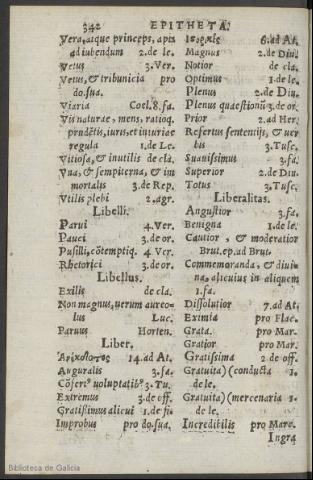 342 EPITHETA.
Vera, atque princeps, apta
ad iubendum 2. de le.
Vetus 3. Ver.
Vetus, & tribunicia pro
do. sua.
Viaria Coel. 8. fa.
Vis naturae, mens, ratioq.
prudētis, iuris, et iniuriae
regula 1. de Le.
Vitiosa, & inutilis de cla.
Vna, & sempiterna, & im
mortalis 3. de Rep.
Vtilis plebi 2. agr.
Libelli.
Parui 4. Ver.
Pauci 3. de or.
Pusilli, cōtemptiq. 4 Ver.
Rhetorici 3. de or.
Libellus.
Exilis de cla.
Non magnus, uerum aureo-
lus Luc.
Paruus Horten.
Liber.
14. ad At.
Auguralis 3. fa.
Cōfert9 voluptatib9 3. Tu.
Extremus 3. de off.
Gratissimus alicui 1. de fi.
Improbus pro do. sua.
6. ad At.
Magnus 2. de Diu.
Notior de cla.
Optimus 1. de le.
Plenus 2. de Diu.
Plenus quaestionū 3. de or.
Prior 2. ad Her.
Refertus sententijs, & uer
bis 3. Tusc.
Suauissimus 3. fa.
Superior 2. de Diu.
Totus 3. Tusc.
Liberalitas.
Angustior 3. fa.
Benigna 1. de le.
Cautior, & moderatior
Brut. ep. ad Brut.
Commemoranda, & diui-
na, alicuius in aliquem
1. fa.
Dissolutior 7. ad At.
Eximia pro Flac.
Grata. pro Mar.
Gratior pro Mar.
Gratissima 2. de off.
Gratuita) (conducta 1.
de le.
Gratuita) (mercenaria 1.
de le.
Incredibilis pro Marc.
Ingra
Biblioteca de Galicia